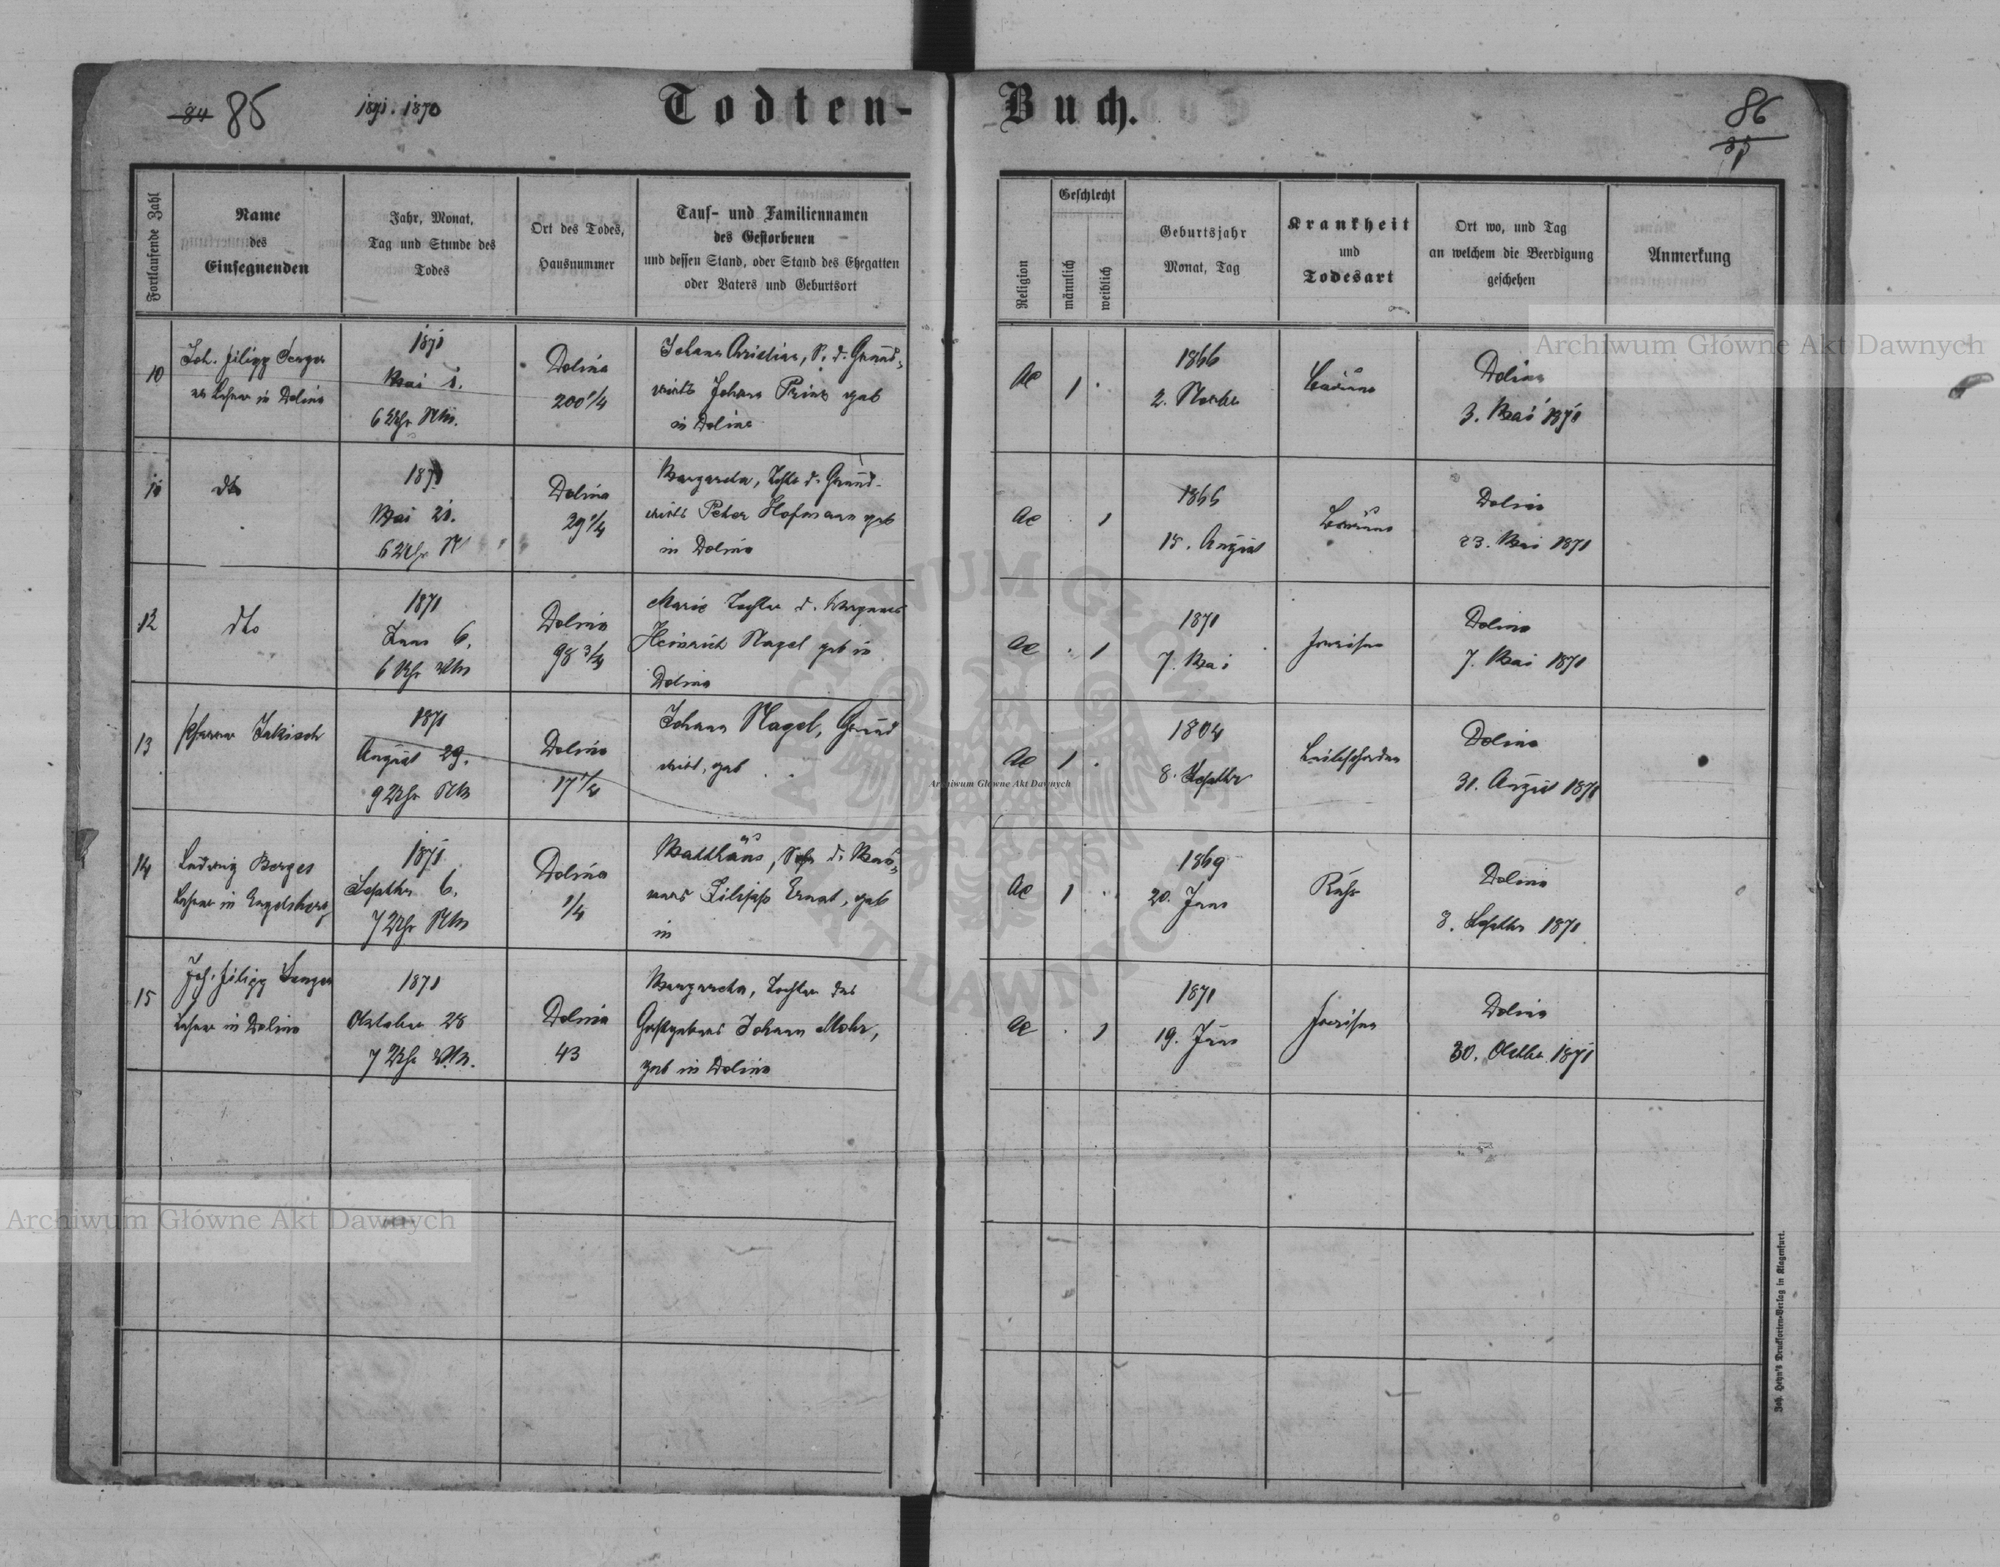 84 85 1871. 1870 Todten- Buch. 86
85
Fortlaufende Zahl
Name
des
Einsegnenden
Jahr, Monat,
Tag und Stunde des
Todes
Ort des Todes,
Hausnummer
Tauf- und Familiennamen
des Gestorbenen
und dessen Stand, oder Stand des Ehegatten
oder Vaters und Geburtsort
Religion
Geschlecht
männlich
weiblich
Geburtsjahr
Monat, Tag
Krankheit
und
Todesart
Ort wo, und Tag
an welchem die Beerdigung
geschehen
Anmerkung
10
Joh. Filipp
Lehrer in Dolina
1871
Mai 1.
6 Uhr Nm.
Dolina
200 1/4
Johann Christian, S. d. Grund-
wirts Johann Prinz geb
in Dolina
AC 1
1866
2. Novbr
Bräune
Dolina
3. Mai 1871
dto
1871
Mai 21.
6 Uhr
Dolina
29 1/4
Margareta, Tochter d. Grund-
wirts Peter Hofmann geb
in Dolina
AC 1
1866
15. August
Bräune
Dolina
23. Mai 1871
12
dto
1871
6.
6 Uhr
Dolina
98 3/4
Marie Tochter d. Wagners
Heinrich Nagel geb in
Dolina
AC 1
1871
7. Mai
Fraisen
Dolina
7. Mai 1871
13
Pfarrer Jakisch
1871
August 29.
9 Uhr Nm
Dolina
17 1/4
Johann Nagel, Grund
wirt, geb
AC 1
1804
8. Septbr
Dolina
31. August 1871
14
Ludwig Berges
Lehrer in Engelsberg
1871
Septbr 6.
7 Uhr Nm
Dolina
1/4
Matthäus, Sohn d. Mau-
rers Filipp Ernst, geb
in
AC 1
1869
20. Juni
Ruhr
Dolina
8. Septbr 1871
15
Joh. Filipp
Lehrer in Dolina
1871
Oktober 28
7 Uhr
Dolina
43
Margareta, Tochter des
Gastgebers Johann Mohr,
geb in Dolina
AC 1
1871
19. Juni
Fraisen
Dolina
30. Oktbr 1871
Joh. Heyn's Drucksorten-Verlag in Klagenfurt.
Archiwum Główne Akt Dawnych
Archiwum Główne Akt Dawnych
Archiwum Główne Akt Dawnych
ARCHIWUM GŁÓWNE AKT DAWNYCH